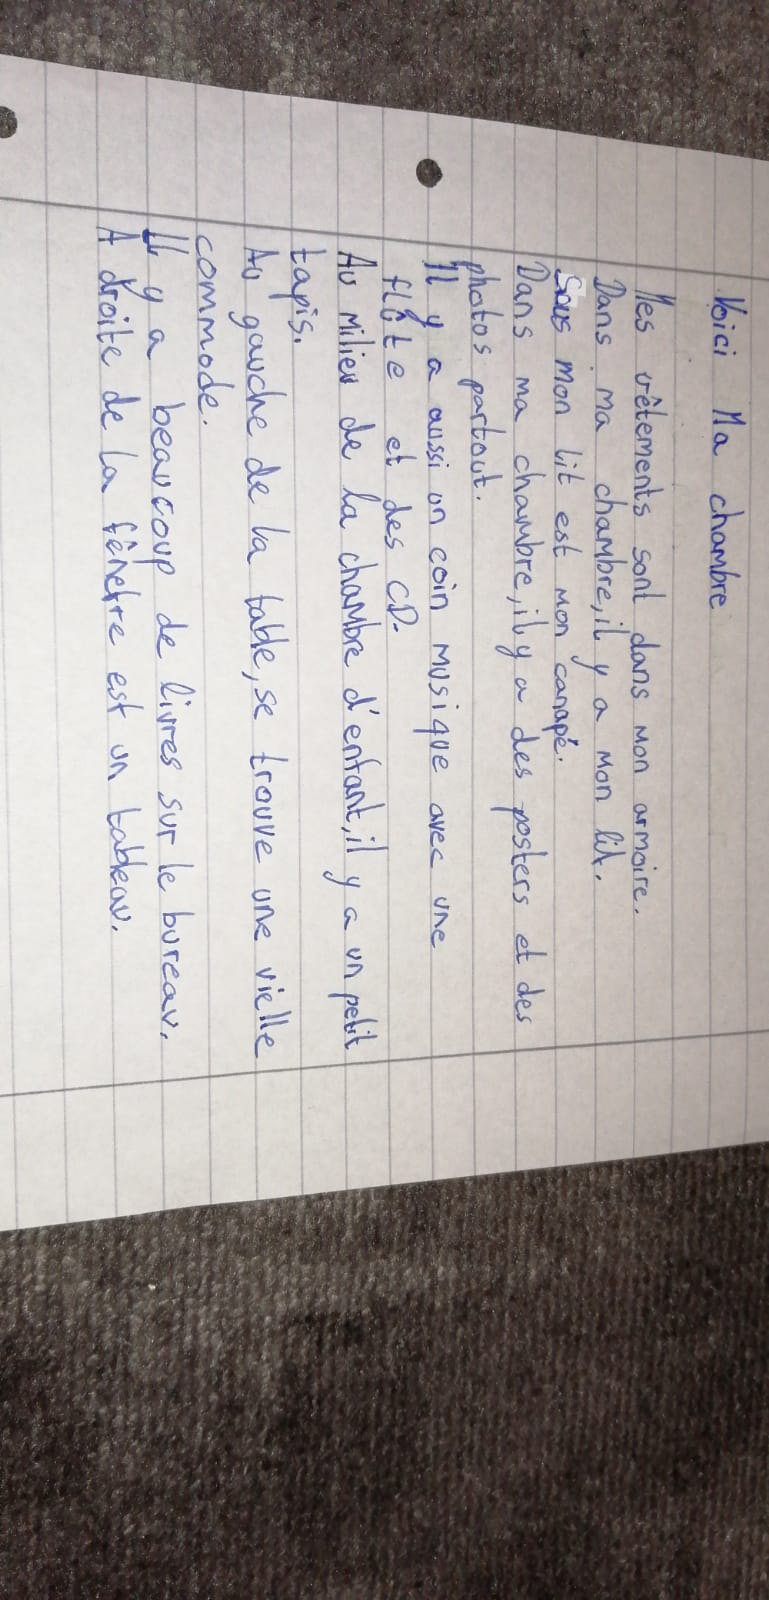 Voici Ma chambre
Mes vêtements sont dans mon armoire.
Dans ma chambre, il y a mon lit.
Sous mon lit est mon canapé.
Dans ma chambre, il y a des posters et des
photos partout.
Il y a aussi un coin musique avec une
flûte et des CD.
Au milieu de la chambre d'enfant, il y a un petit
tapis.
Au gauche de la table, se trouve une vielle
commode.
Il y a beaucoup de livres sur le bureau.
A droite de la fênetre est un tableau.